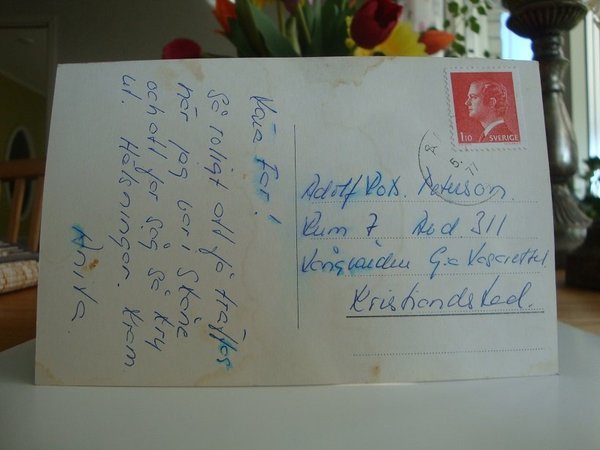 Kära Far!
Så roligt att få träffas
när jag var i Skåne
och att far såg så kry
ut. Hälsningar. Kram
Anita.
1.10 SVERIGE
Adolf Peterson.
Rum 7 Avd 311
Långvården G:a Lasarettet
Kristianstad.